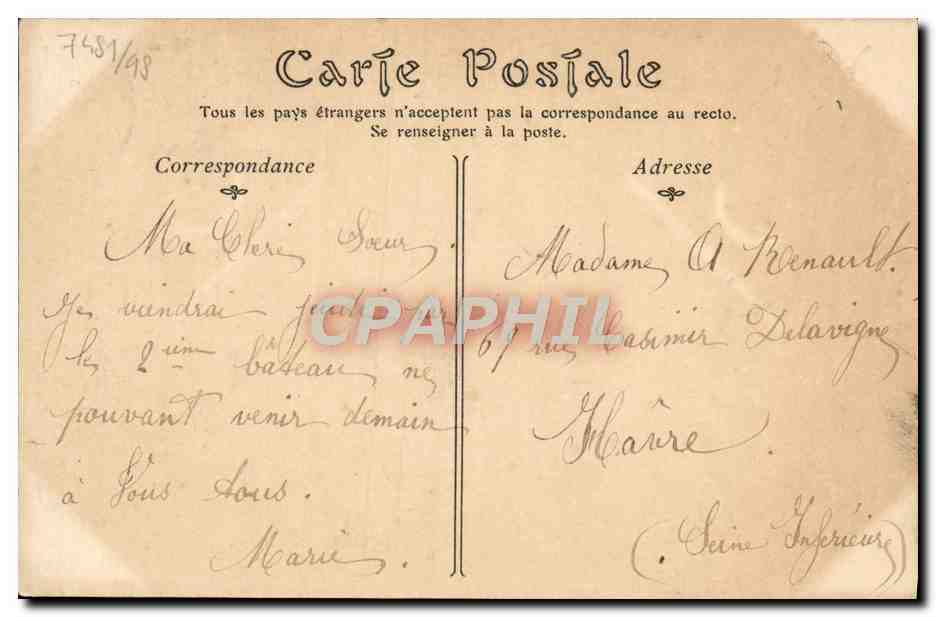 7481/98
Carte Postale
Tous les pays étrangers n'acceptent pas la correspondance au recto.
Se renseigner à la poste.
Correspondance
Ma Chère Soeur.
Je viendrai jeudi par
le 2ième bâteau ne
pouvant venir demain
à Vous tous.
Marie.
Adresse
Madame A Renault.
69 rue Casimir Delavigne
Hâvre.
(Seine Inférieure)
CPAPHIL